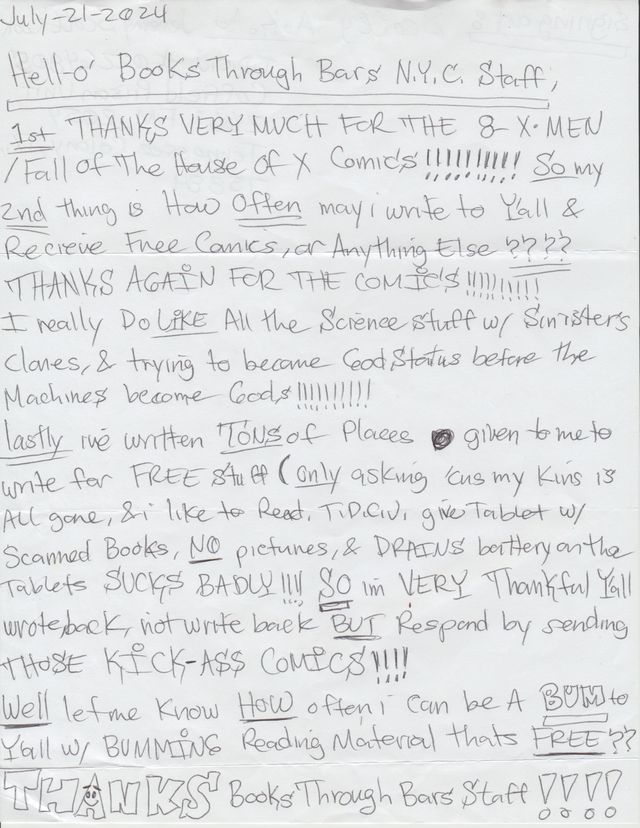 July-21-2024
Hell-o' Books Through Bars N.Y.C. Staff,
1st THANKS VERY MUCH FOR THE 8- X-MEN
/Fall of The House of X Comics!!!!!!!!!! So my
2nd thing is How Often may i write to Yall &
Recieve Free Comics, or Anything Else ????
THANKS AGAIN FOR THE COMICS !!!!!!!!!
I really Do LIKE All the Science stuff w/ Sinister's
Clones, & trying to become God Status before the
Machines become Gods!!!!!!!!!!
lastly ive written TONS of Places given to me to
write for FREE stuff (only asking 'cus my Kins is
All gone, & i like to Read. T.D.C.J. give Tablet w/
Scanned Books, NO pictures, & DRAINS battery on the
Tablets SUCKS BADLY!!!! SO im VERY Thankful Yall
wrote back, not write back BUT Respond by sending
THOSE KICK-ASS COMICS!!!!
Well let me know HOW often i can be A BUM to
Yall w/ BUMMING Reading Material thats FREE??
THANKS Books Through Bars Staff !!!!